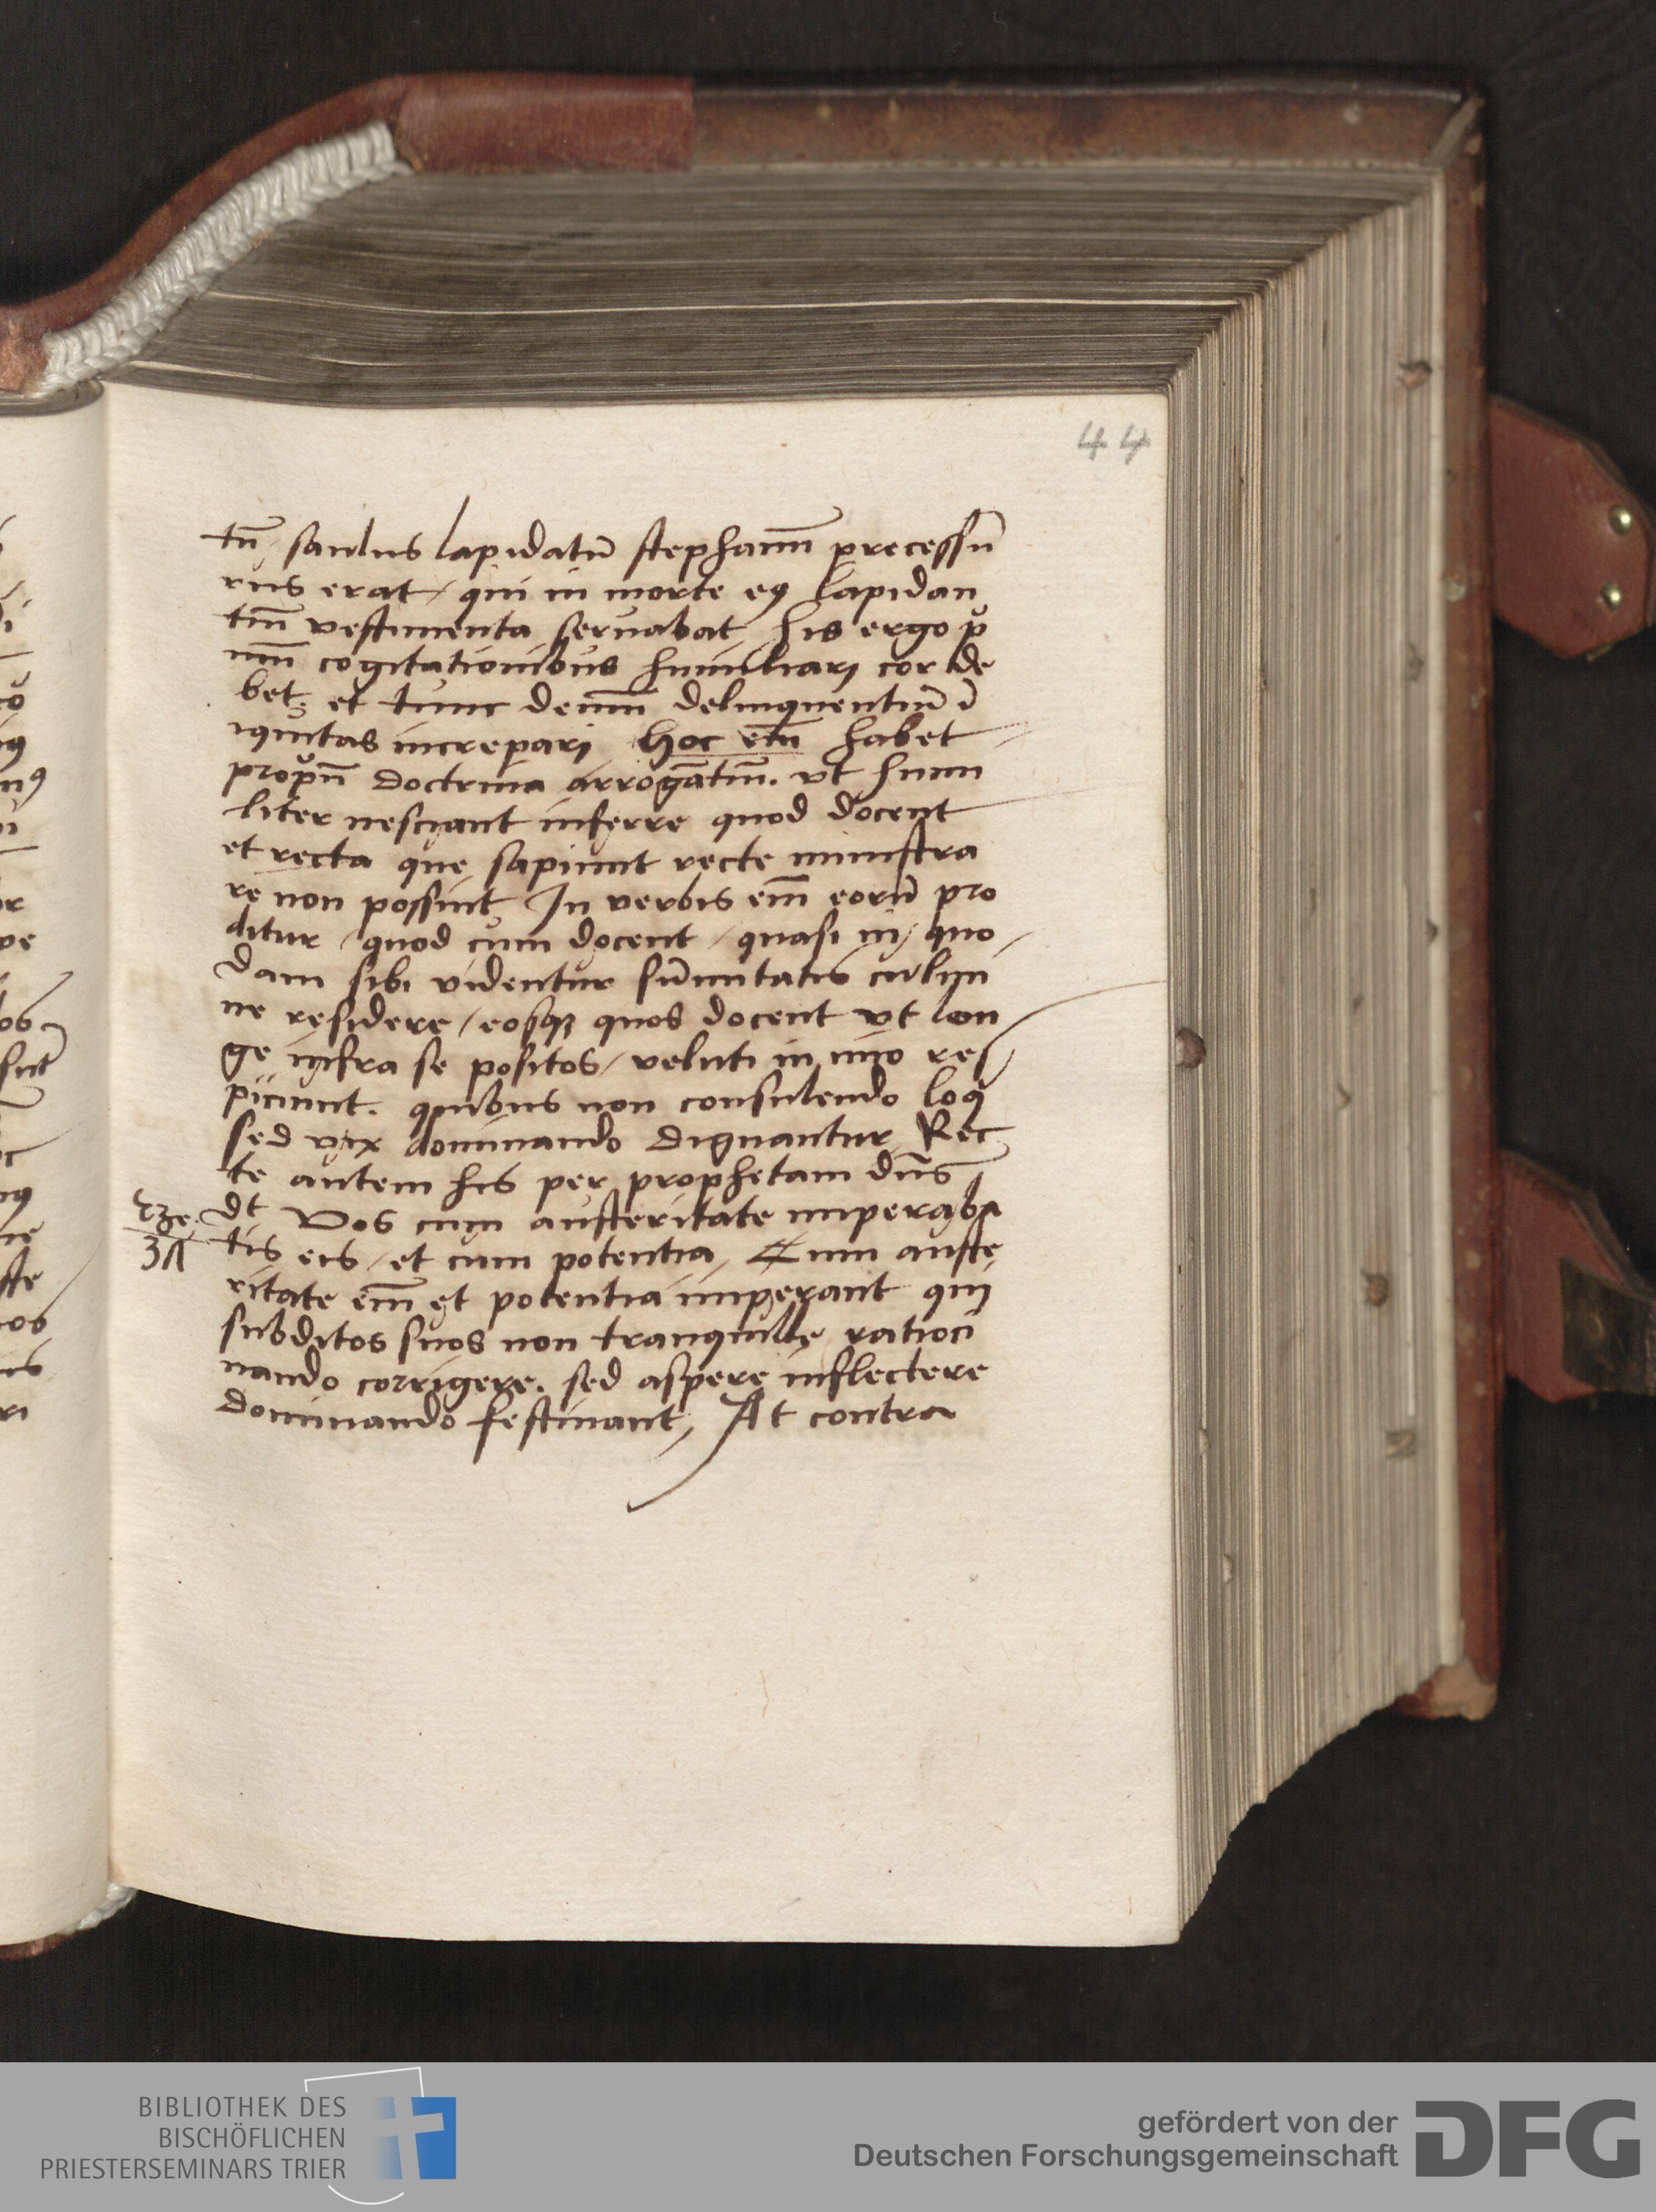 44
tū saulus lapidatū stephanū precessu
rus erat / qui in morte eꝯ lapidan
tiū vestimenta seruabat, his ergo p̄
mū cogitationibus humiliari cor de
bet, et tunc demū delinquentiū ī
iquitas increpari Hoc em̄ habet
propriū doctrina arrogātiū. vt humi
liter nesciant inferre quod docent
et recta que sapiunt recte ministra
re non possint, In verbis em̄ eorū pro
ditur / quod cum docent / quasi in quo
dam sibi videntur sūmitatis culmi
ne residere / eosqꝫ quos docent vt lon
ge infra se positos / veluti in imo res
piciunt. quibus non consulendo loqͥ
sed vix dominando dignantur, Rec
te autem his per prophetam dn̄s
Eze.
34
dt Vos cum austeritate imperaba
tis eis / et cum potentia, Cum auste
ritate em̄ et potentia imperant qui
subditos suos non tranquille ratioci
nando corrigere. sed aspere inflectere
dominando festinant, At contra
BIBLIOTHEK DES
BISCHÖFLICHEN
PRIESTERSEMINARS TRIER
gefördert von der
Deutschen Forschungsgemeinschaft
DFG